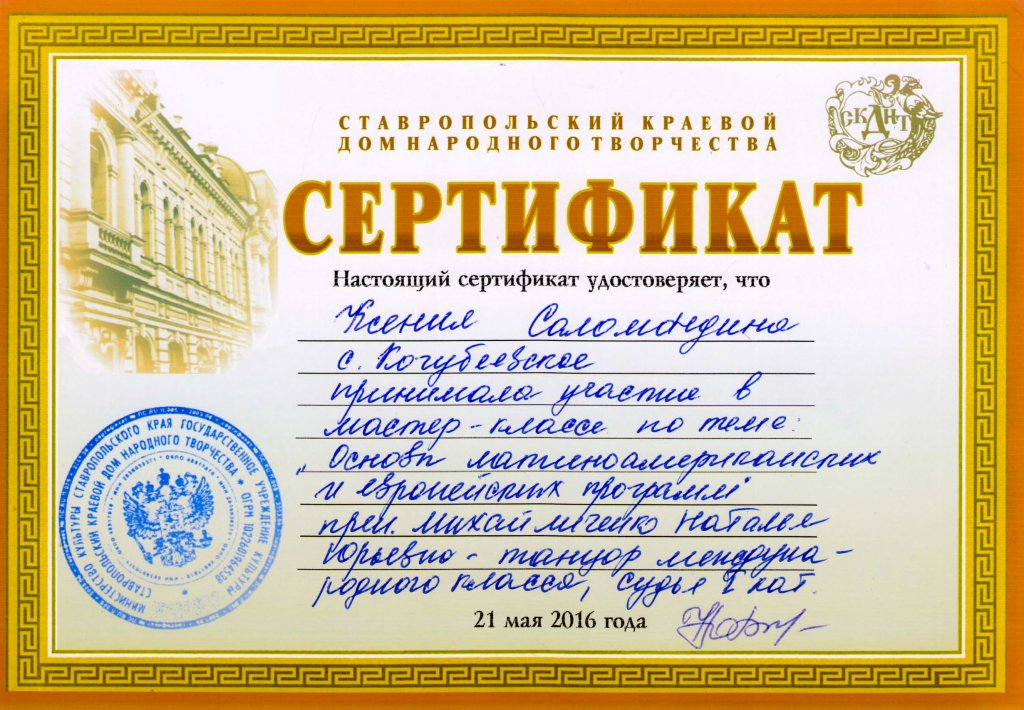 СТАВРОПОЛЬСКИЙ КРАЕВОЙ
ДОМ НАРОДНОГО ТВОРЧЕСТВА
СКДНТ
СЕРТИФИКАТ
Настоящий сертификат удостоверяет, что
Ксения Саломандина
с. Кочубеевское
принимала участие в
мастер-классе по теме:
„Основы латиноамериканских
и европейских программ"
преп. Михайличенко Наталья
Юрьевна - танцор междуна-
родного класса, судья I кат.
21 мая 2016 года
МИНИСТЕРСТВО КУЛЬТУРЫ СТАВРОПОЛЬСКОГО КРАЯ ГОСУДАРСТВЕННОЕ УЧРЕЖДЕНИЕ КУЛЬТУРЫ
СТАВРОПОЛЬСКИЙ КРАЕВОЙ ДОМ НАРОДНОГО ТВОРЧЕСТВА * ОГРН